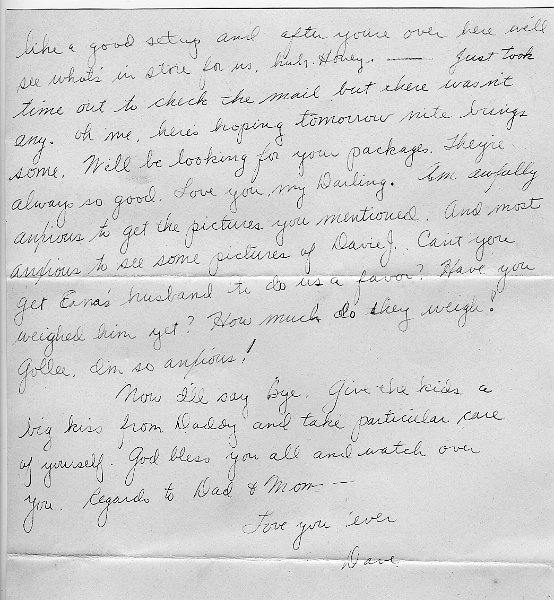 like a good setup and after you're over here we'll
see what's in store for us, huh. Honey. — Just took
time out to check the mail but there wasn't
any. Oh me, here's hoping tomorrow nite brings
some. Will be looking for your packages. They're
always so good. Love you, my Darling. Am awfully
anxious to get the pictures you mentioned. And most
anxious to see some pictures of Davie J. Can't you
get Erna's husband to do us a favor? Have you
weighed him yet? How much do they weigh?
Gollee, I'm so anxious!
Now I'll say Bye. Give the kids a
big kiss from Daddy and take particular care
of yourself. God bless you all and watch over
you. Regards to Dad & Mom —
Love you 'ever
Dave.